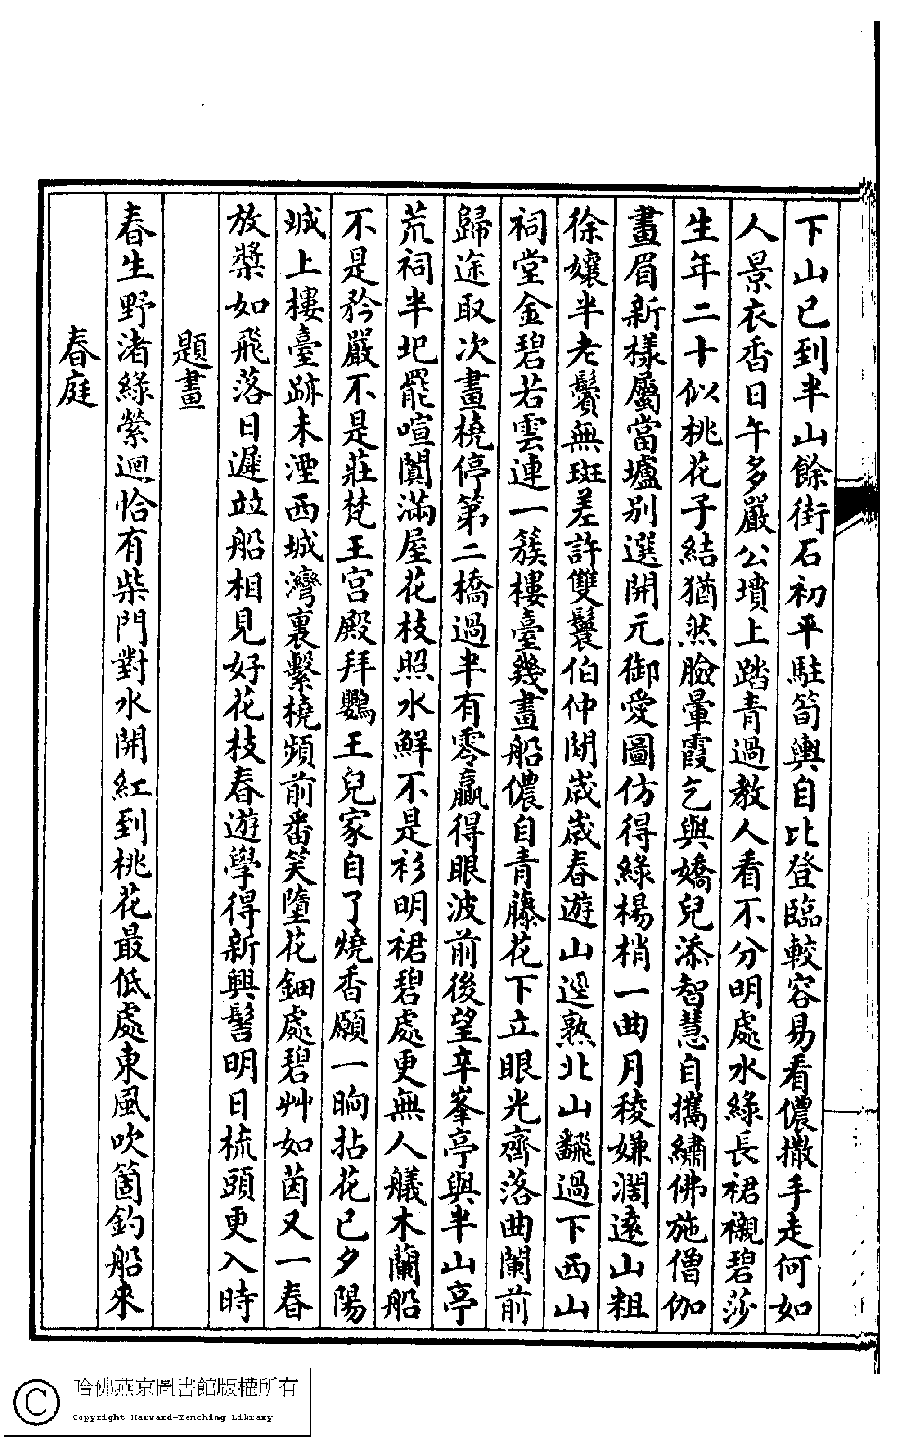 下山已到半山餘街石初平駐筍輿自比登臨較容易看儂撒手走何如
人景衣香日午多嚴公墳上踏青過教人看不分明處水綠長裙襯碧莎
生年二十似桃花子結猶然臉暈霞乞與嬌兒添智慧自攜繡佛施僧伽
畫眉新樣屬當壚別選開元御愛圖仿得綠楊梢一曲月稜嫌濶遠山粗
徐孃半老鬢無斑差許雙鬟伯仲間歲歲春遊山逕熟北山翻過下西山
祠堂金碧若雲連一簇樓臺幾畫船儂自青藤花下立眼光齊落曲闌前
歸途取次畫橈停第二橋過半有零贏得眼波前後望辛峯亭與半山亭
荒祠半圮罷喧闐滿屋花枝照水鮮不是衫明裙碧處更無人艤木蘭船
不是矜嚴不是莊梵王宮殿拜鸚王兒家自了燒香願一晌拈花已夕陽
城上樓臺跡未湮西城灣裏繫橈頻前番笑墮花鈿處碧艸如茵又一春
放槳如飛落日遲竝船相見好花枝春遊學得新興髻明日梳頭更入時
題畫
春生野渚綠縈迴恰有柴門對水開紅到桃花最低處東風吹箇釣船來
春庭
哈佛燕京圖書館版權所有
Copyright Harvard-Yenching Library